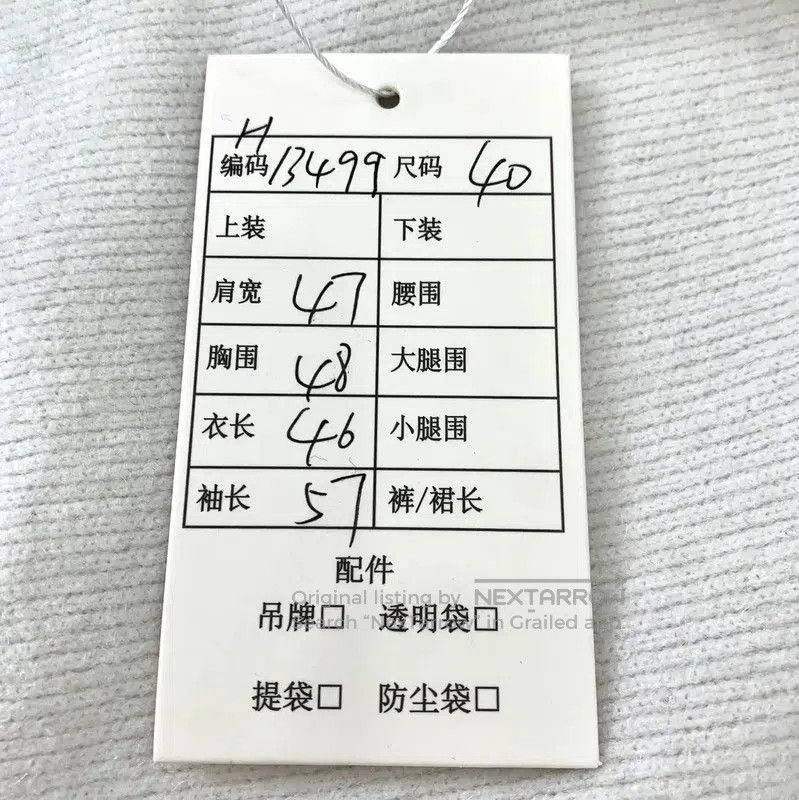 H
编码 13499 尺码 40
上装 下装
肩宽 47 腰围
胸围 48 大腿围
衣长 46 小腿围
袖长 57 裤/裙长
配件
Original listing by NEXTARROW
吊牌□ 透明袋□
Search "Nextarrow" in Grailed and
提袋□ 防尘袋□